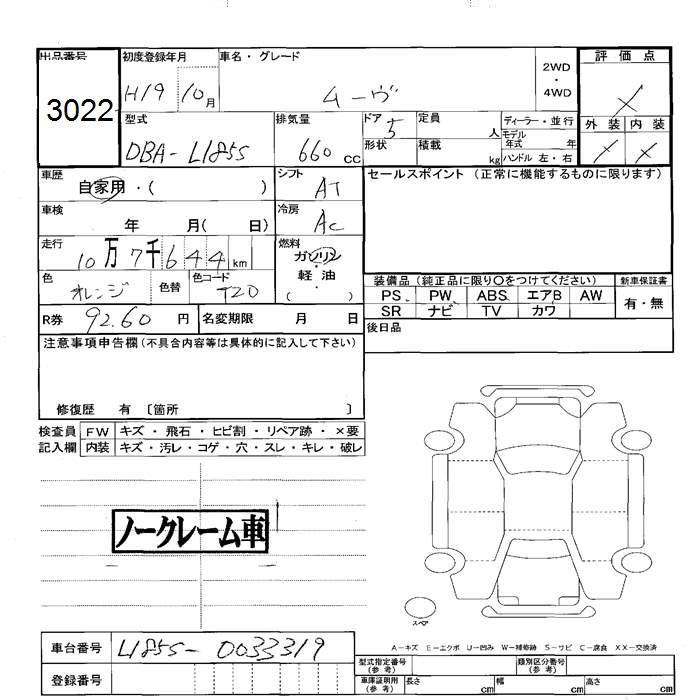 出品番号 初度登録年月 車名・グレード 2WD・4WD 評価点
3022 H19 10月 ムーヴ X
型式 排気量 ドア 定員 ディーラー・並行 外装 内装
DBA-L185S 660 cc 5 人 モデル年式 年 X X
形状 積載 kg ハンドル 左・右
車歴 自家用・( ) シフト AT セールスポイント (正常に機能するものに限ります)
車検 年 月( 日) 冷房 AC
走行 10万7千644km 燃料 ガソリン
軽・油
( )
色 オレンジ 色替 色コード T20
装備品 (純正品に限り〇をつけてください) 新車保証書
PS PW ABS エアB AW 有・無
SR ナビ TV カワ
R券 92.60 円 名変期限 月 日 後日品
注意事項申告欄(不具合内容等は具体的に記入して下さい)
修復歴 有 〔箇所 〕
検査員 FW キズ・飛石・ヒビ割・リペア跡・×要
記入欄 内装 キズ・汚レ・コゲ・穴・スレ・キレ・破レ
ノークレーム車
スペア
A-キズ E-エクボ U-凹み W-補修跡 S-サビ C-腐食 XX-交換済
車台番号 L185S-0033319
型式指定番号(参考) 類別区分番号(参考)
登録番号
車庫証明用(参考) 長さ cm 幅 cm 高さ cm